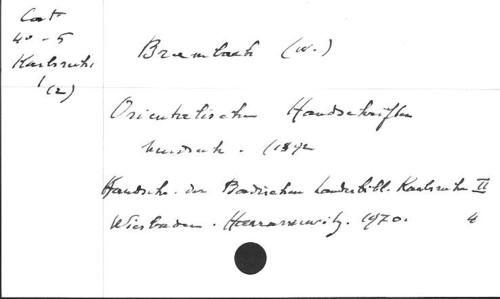 Cat
40-5
Karlsruhe
1(2)
Brambach (W.)
Orientalischen Handschriften
Neudruck. (1892
Handschr. der Badischen Landesbibl. Karlsruhe II
Wiesbaden. Harrassowitz. 1970. 4